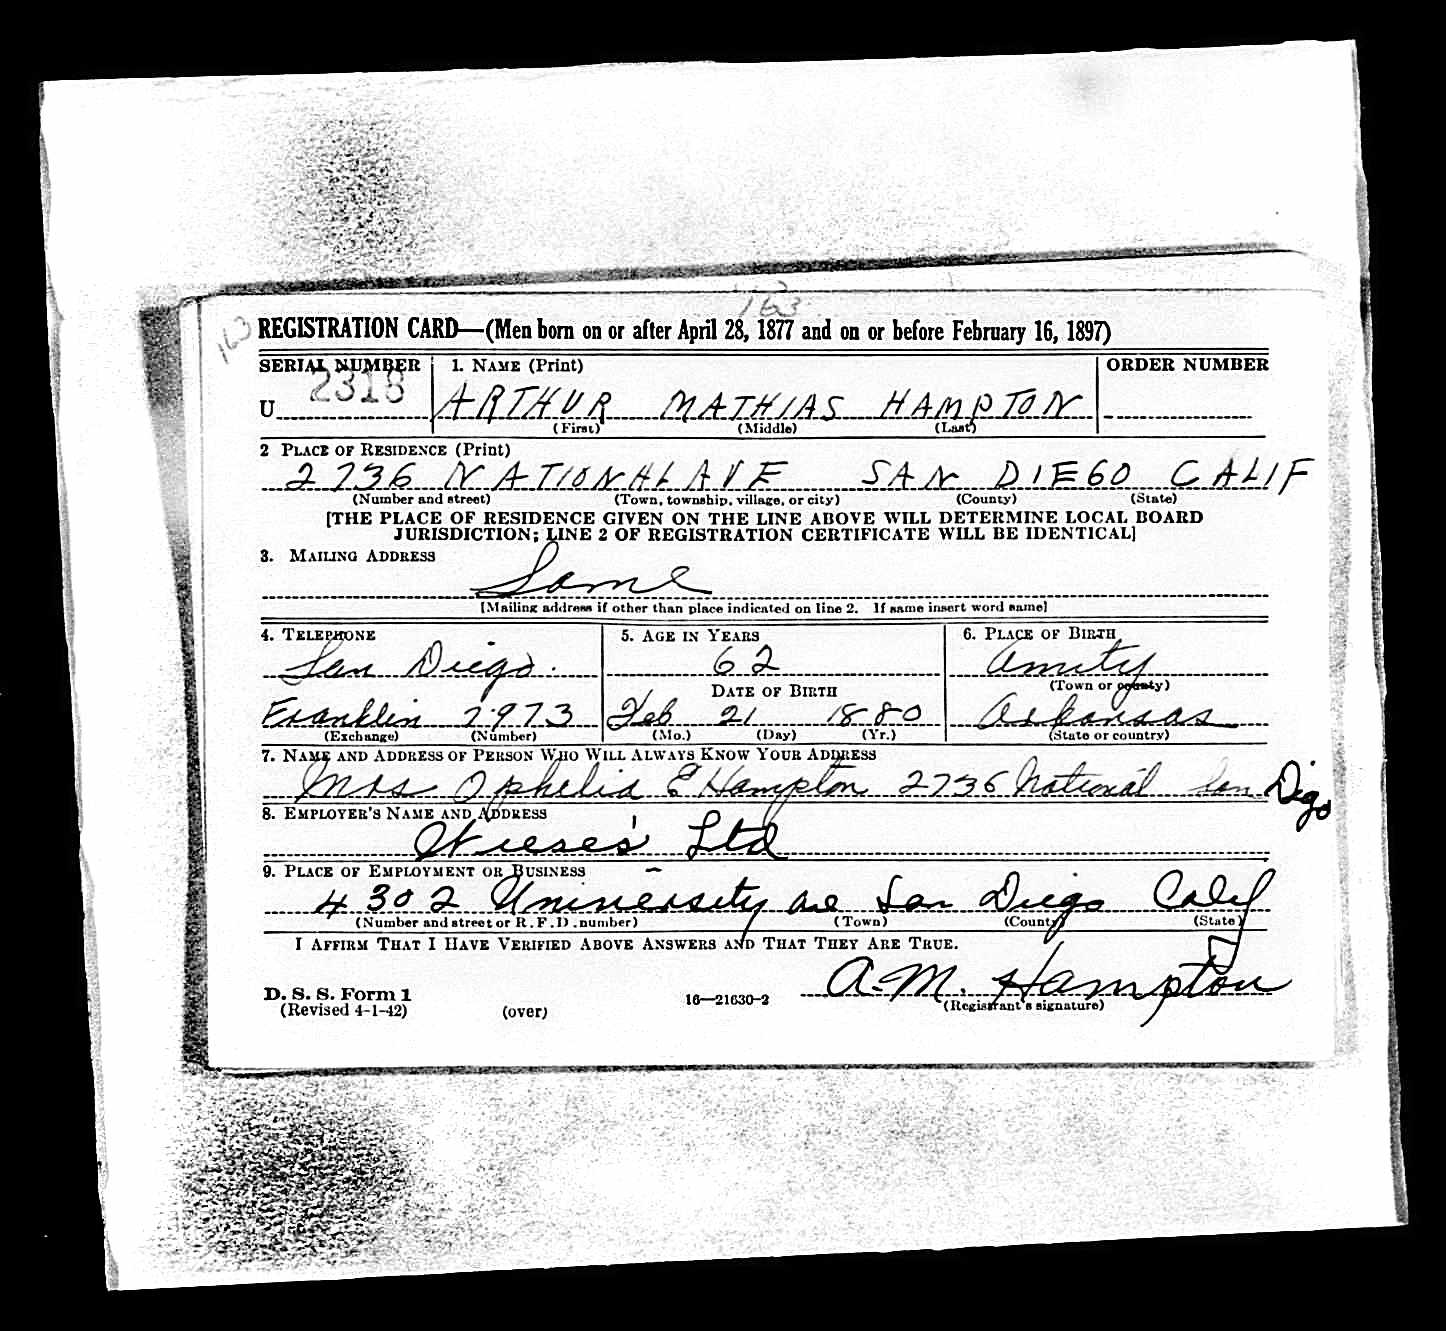 163
163 REGISTRATION CARD—(Men born on or after April 28, 1877 and on or before February 16, 1897)
SERIAL NUMBER 1. NAME (Print) ORDER NUMBER
U 2318 ARTHUR MATHIAS HAMPTON
(First) (Middle) (Last)
2 PLACE OF RESIDENCE (Print)
2736 NATIONAL AVE SAN DIEGO CALIF
(Number and street) (Town, township, village, or city) (County) (State)
[THE PLACE OF RESIDENCE GIVEN ON THE LINE ABOVE WILL DETERMINE LOCAL BOARD
JURISDICTION; LINE 2 OF REGISTRATION CERTIFICATE WILL BE IDENTICAL]
3. MAILING ADDRESS
Same
[Mailing address if other than place indicated on line 2. If same insert word same]
4. TELEPHONE 5. AGE IN YEARS 6. PLACE OF BIRTH
San Diego. 62 Amity
DATE OF BIRTH (Town or county)
Franklin 7973 Feb 21 1880 Arkansas
(Exchange) (Number) (Mo.) (Day) (Yr.) (State or country)
7. NAME AND ADDRESS OF PERSON WHO WILL ALWAYS KNOW YOUR ADDRESS
Mrs Ophelia E Hampton 2736 National San Digo
8. EMPLOYER'S NAME AND ADDRESS
Wiese's Ltd
9. PLACE OF EMPLOYMENT OR BUSINESS
4302 University ave San Diego Calif
(Number and street or R. F. D. number) (Town) (County) (State)
I AFFIRM THAT I HAVE VERIFIED ABOVE ANSWERS AND THAT THEY ARE TRUE.
A. M. Hampton
D. S. S. Form 1 16—21630-2 (Registrant's signature)
(Revised 4-1-42) (over)